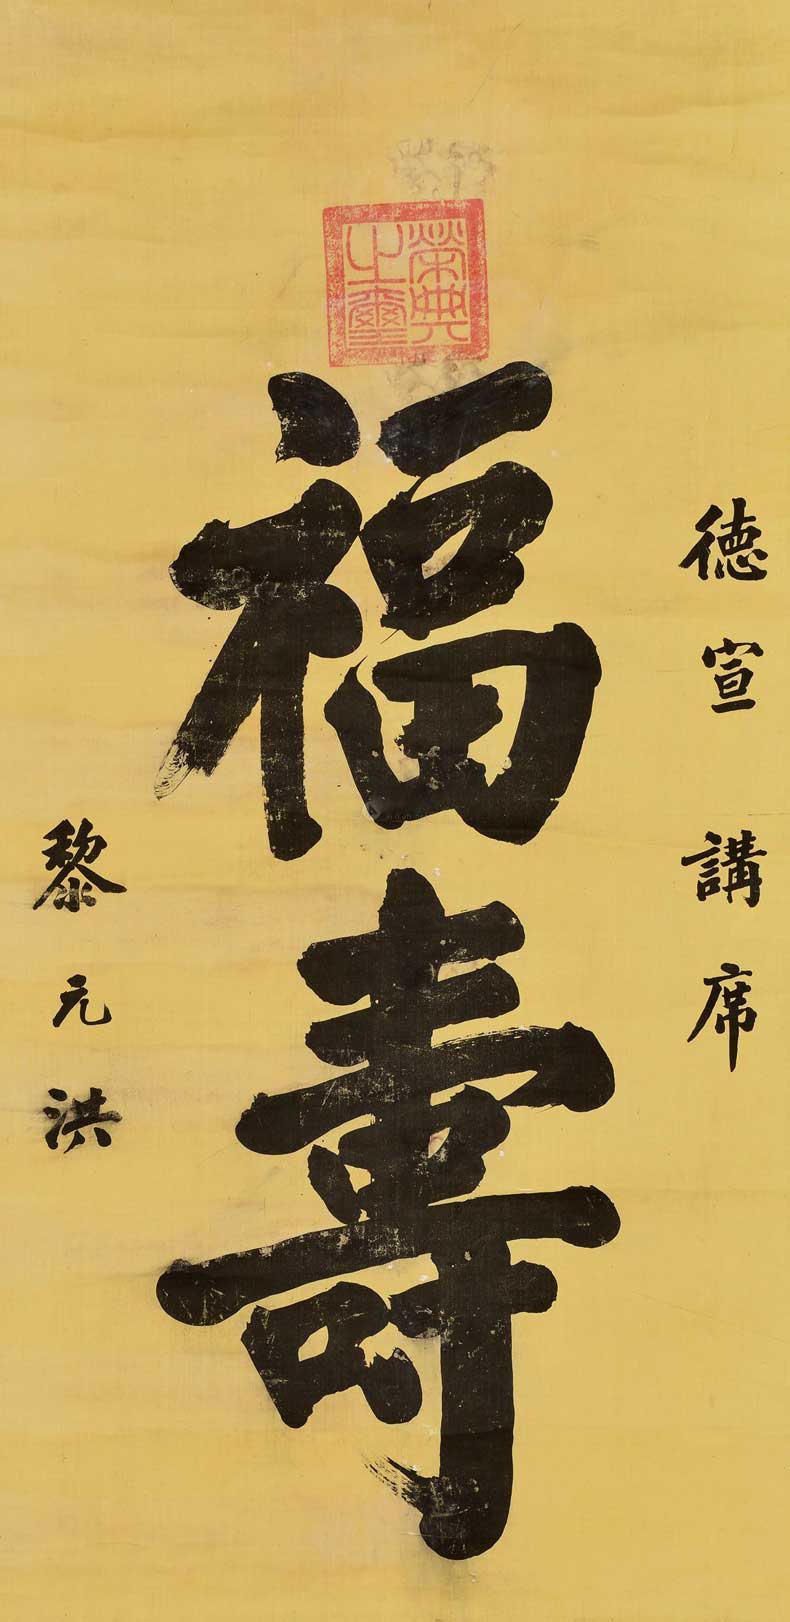 德宣講席
榮典之璽
福壽
黎元洪